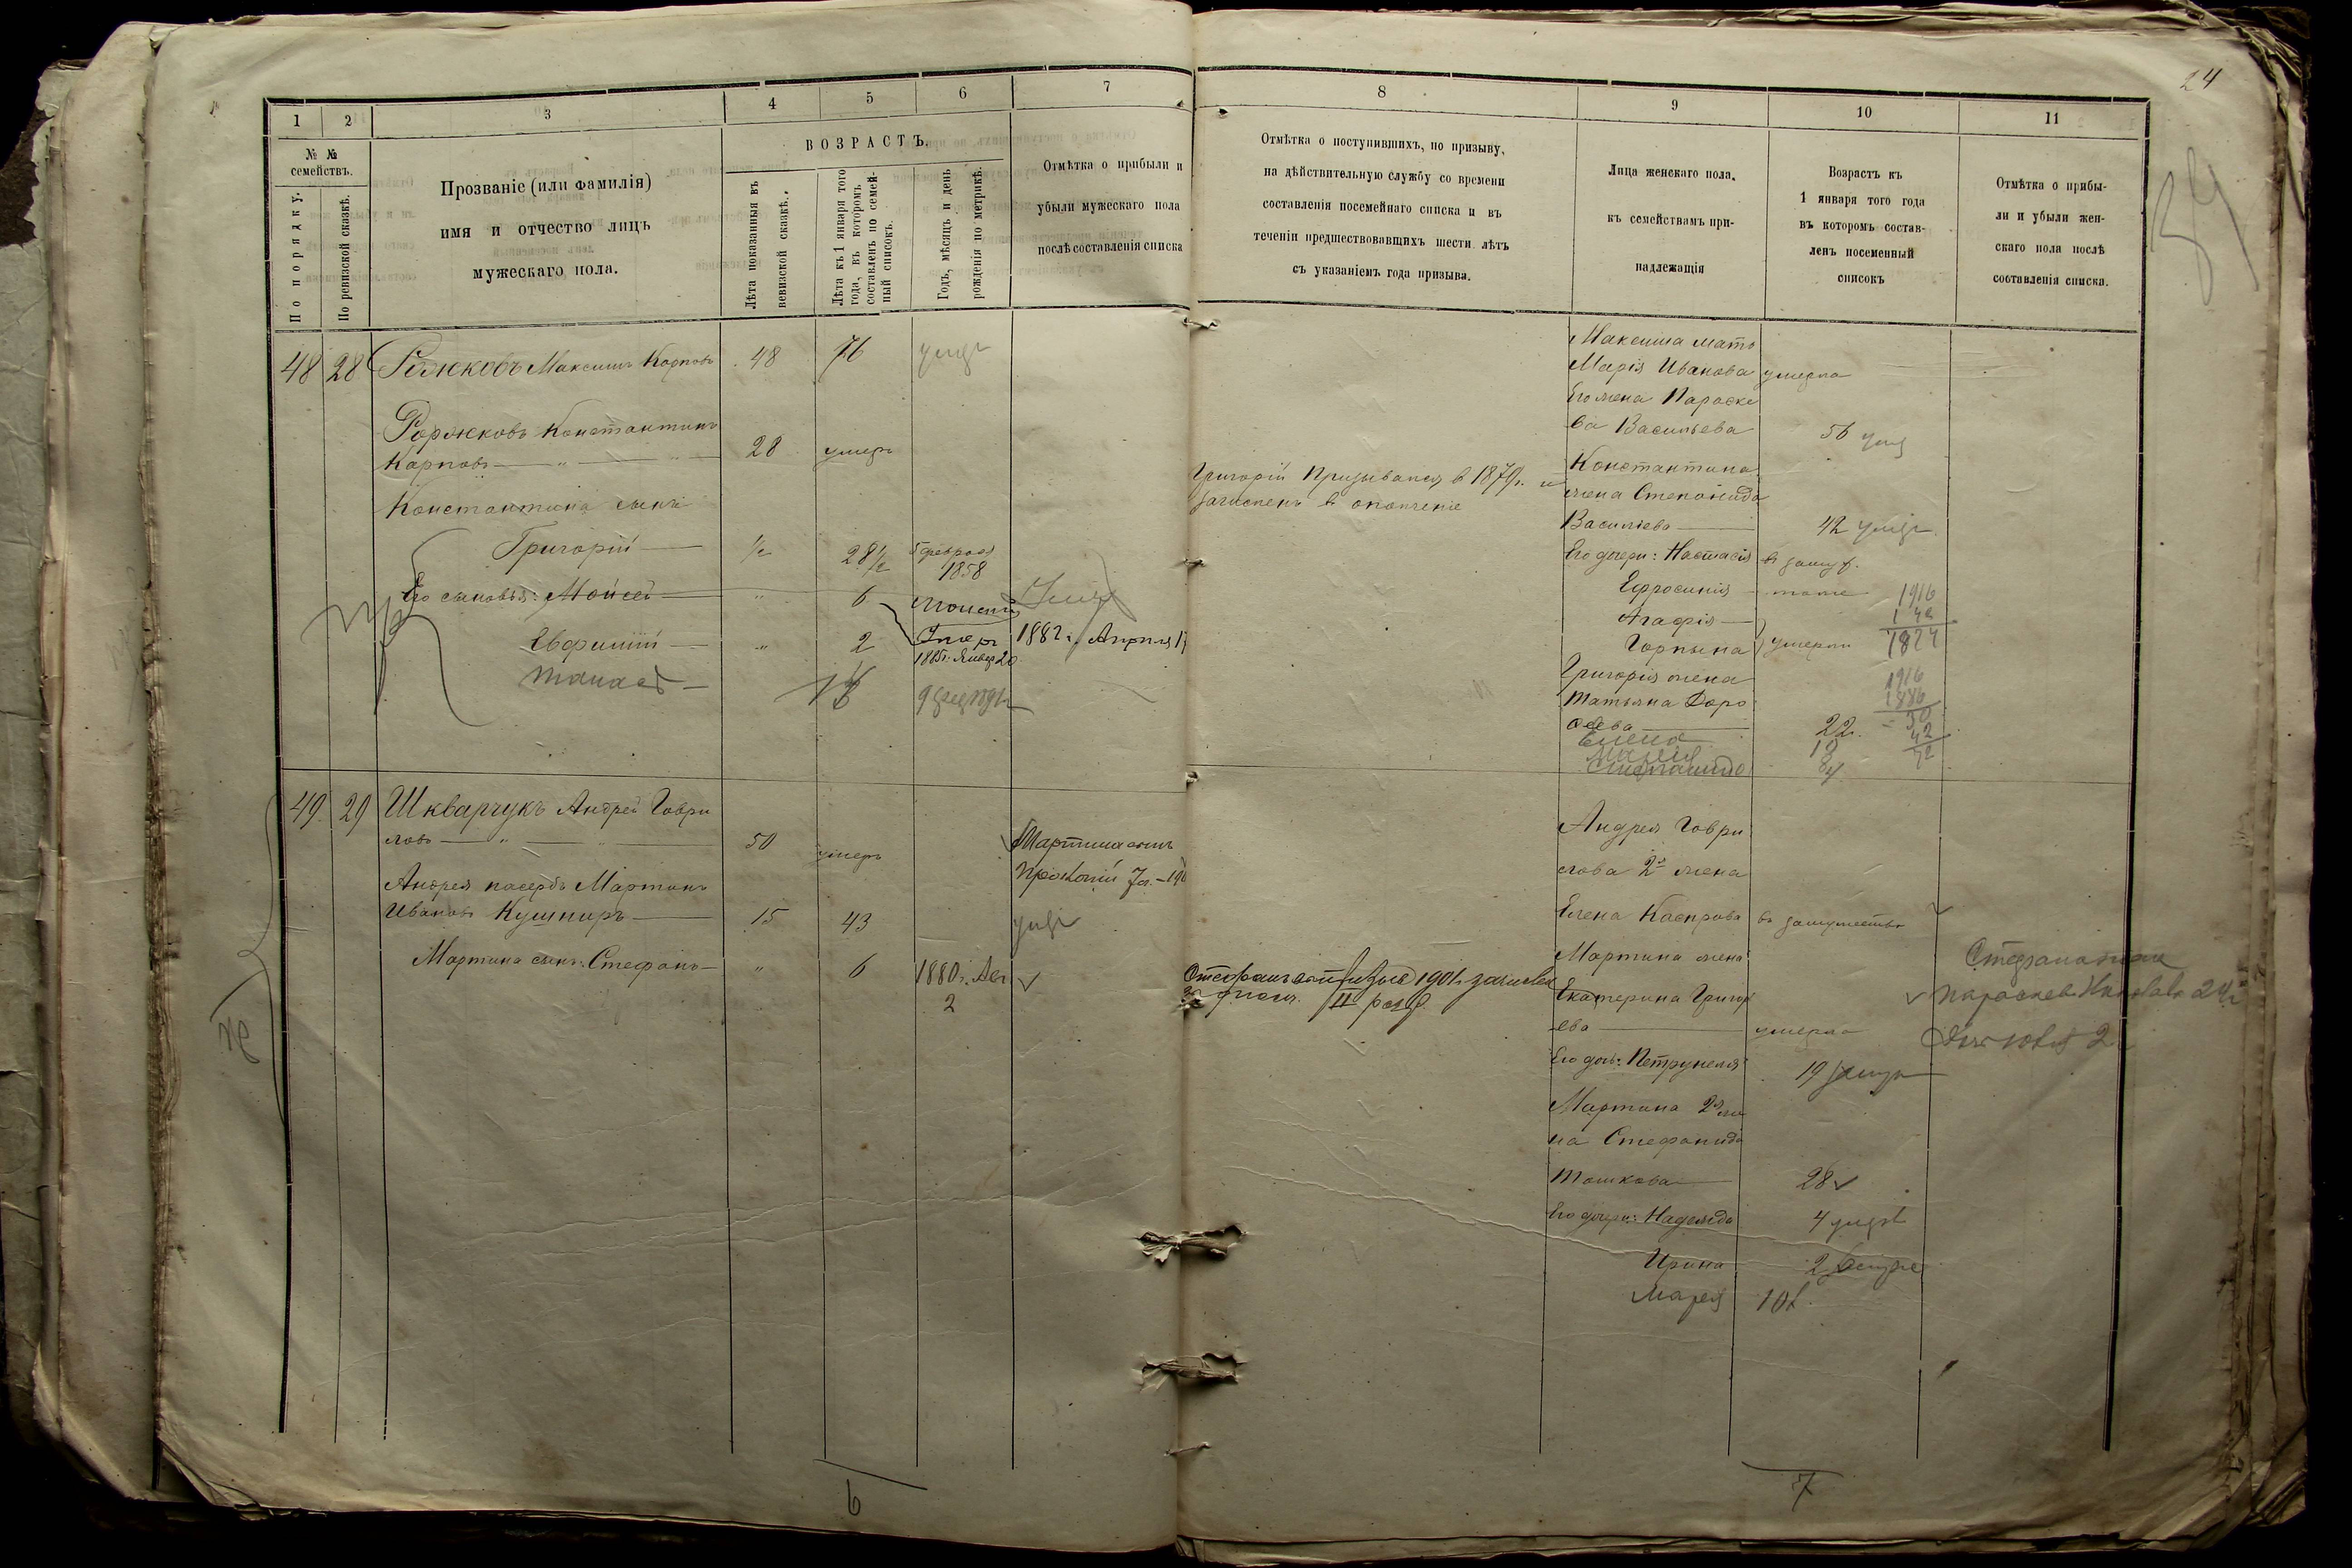 24
1 2 3 4 5 6 7
№ №
семействъ.
По порядку.
По ревизской сказкѣ.
Прозваніе (или фамилія)
имя и отчество лицъ
мужескаго пола.
ВОЗРАСТЪ.
Лѣта показанныя въ
ревизской сказкѣ.
Лѣта къ 1 января того
года, въ которомъ
составленъ по семей-
ный списокъ.
Годъ, мѣсяцъ и день
рожденія по метрикѣ.
Отмѣтка о прибыли и
убыли мужескаго пола
послѣ составленія списка
48 28 Максимъ Карповъ 48 76 умеръ
Константинъ
Карповъ 28 умеръ
Константина сынъ
Григорій ½ 28½ 5 февраля
1858
Его сыновья: Мойсей " 6
Евфимій " 2 Умеръ 1882 г. Апрѣля 17
1885 г. Январ 20
Танасъ
49 29 Шкварчукъ Андрей Гаври
ловъ 50 умеръ
Мартина сынъ
Андрея пасербъ Мартинъ
Прокопій
Ивановъ Кушниръ 15 43 умеръ
Мартина сынъ: Стефанъ " 6 1880 г. Авг.
2
6
8 9 10 11
Отмѣтка о поступившихъ, по призыву,
на дѣйствительную службу со времени
составленія посемейнаго списка и въ
теченіи предшествовавшихъ шести лѣтъ
съ указаніемъ года призыва.
Лица женскаго пола,
къ семействамъ при-
надлежащія
Возрастъ къ
1 января того года
въ которомъ состав-
ленъ посеменный
списокъ
Отмѣтка о прибы-
ли и убыли жен-
скаго пола послѣ
составленія списка.
Максима мать
Марія Иванова умерла
Его жена Параске
ва Васильева 56 умер
Константина
Григорій Призывался в 1879 г. и
жена Степанида
зачисленъ в ополченіе
Васильева 42 умер
Его дочери: Настасія в замуж.
Ефросинія тоже 1916
Агафія
Горпына умерли 1874
Григорія жена 1916
Татьяна Доро 1886
ѳеева 22 30
Елена 18 42
Марія 8 72
Степанида
Андрея Гаври
лова 2я жена
Елена Каспрова в замужествѣ
Мартина жена
Стефана жена
Стефанъ 1901 г. зачисленъ
II разр.
Екатерина Григорь
ева умерла
Параскева 24
2
Его дочь: Петрунеля 19 замуж
Мартина 2я же
на Стефанида
Машкова 28
Его дочери: Надежда 4 умер
Ирина 2 замуж
Марія 10
7